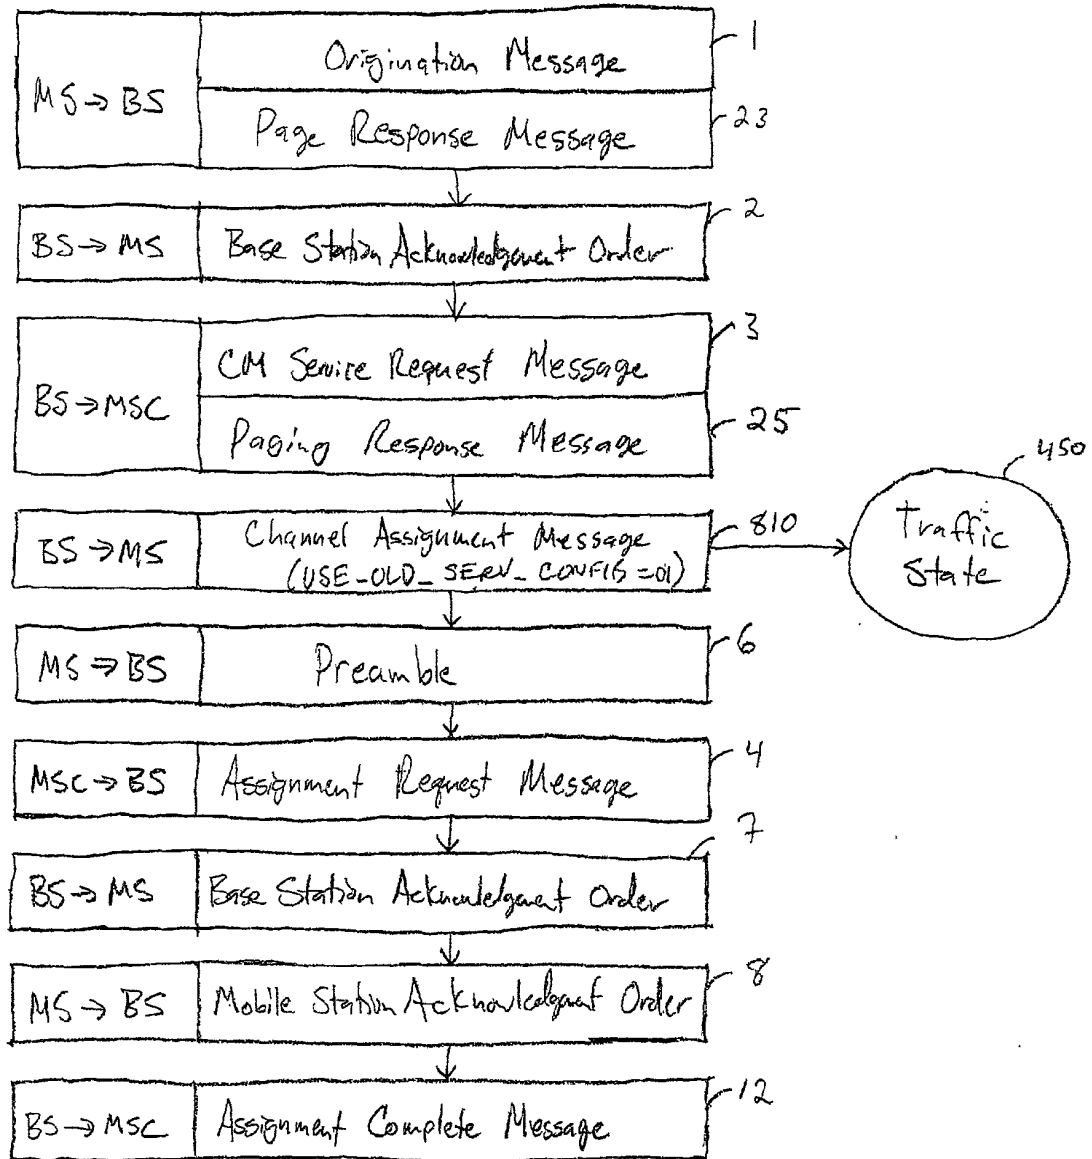 MS → BS
Origination Message
1
Page Response Message
23
BS → MS
Base Station Acknowledgment Order
2
BS → MSC
CM Service Request Message
3
Paging Response Message
25
BS → MS
Channel Assignment Message
(USE_OLD_SERV_CONFIG = 01)
810
Traffic
State
450
MS ⇒ BS
Preamble
6
MSC → BS
Assignment Request Message
4
BS → MS
Base Station Acknowledgment Order
7
MS → BS
Mobile Station Acknowledgment Order
8
BS → MSC
Assignment Complete Message
12